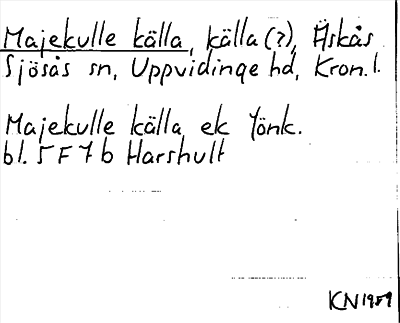 Majekulle källa, källa (?), Äskås
Sjösås sn, Uppvidinge hd, Kron. l.
Majekulle källa ek Jönk.
bl. 5 F 7 b Harshult
KN 1989